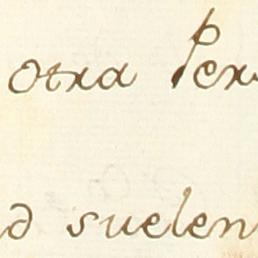 otra Per
d suelen